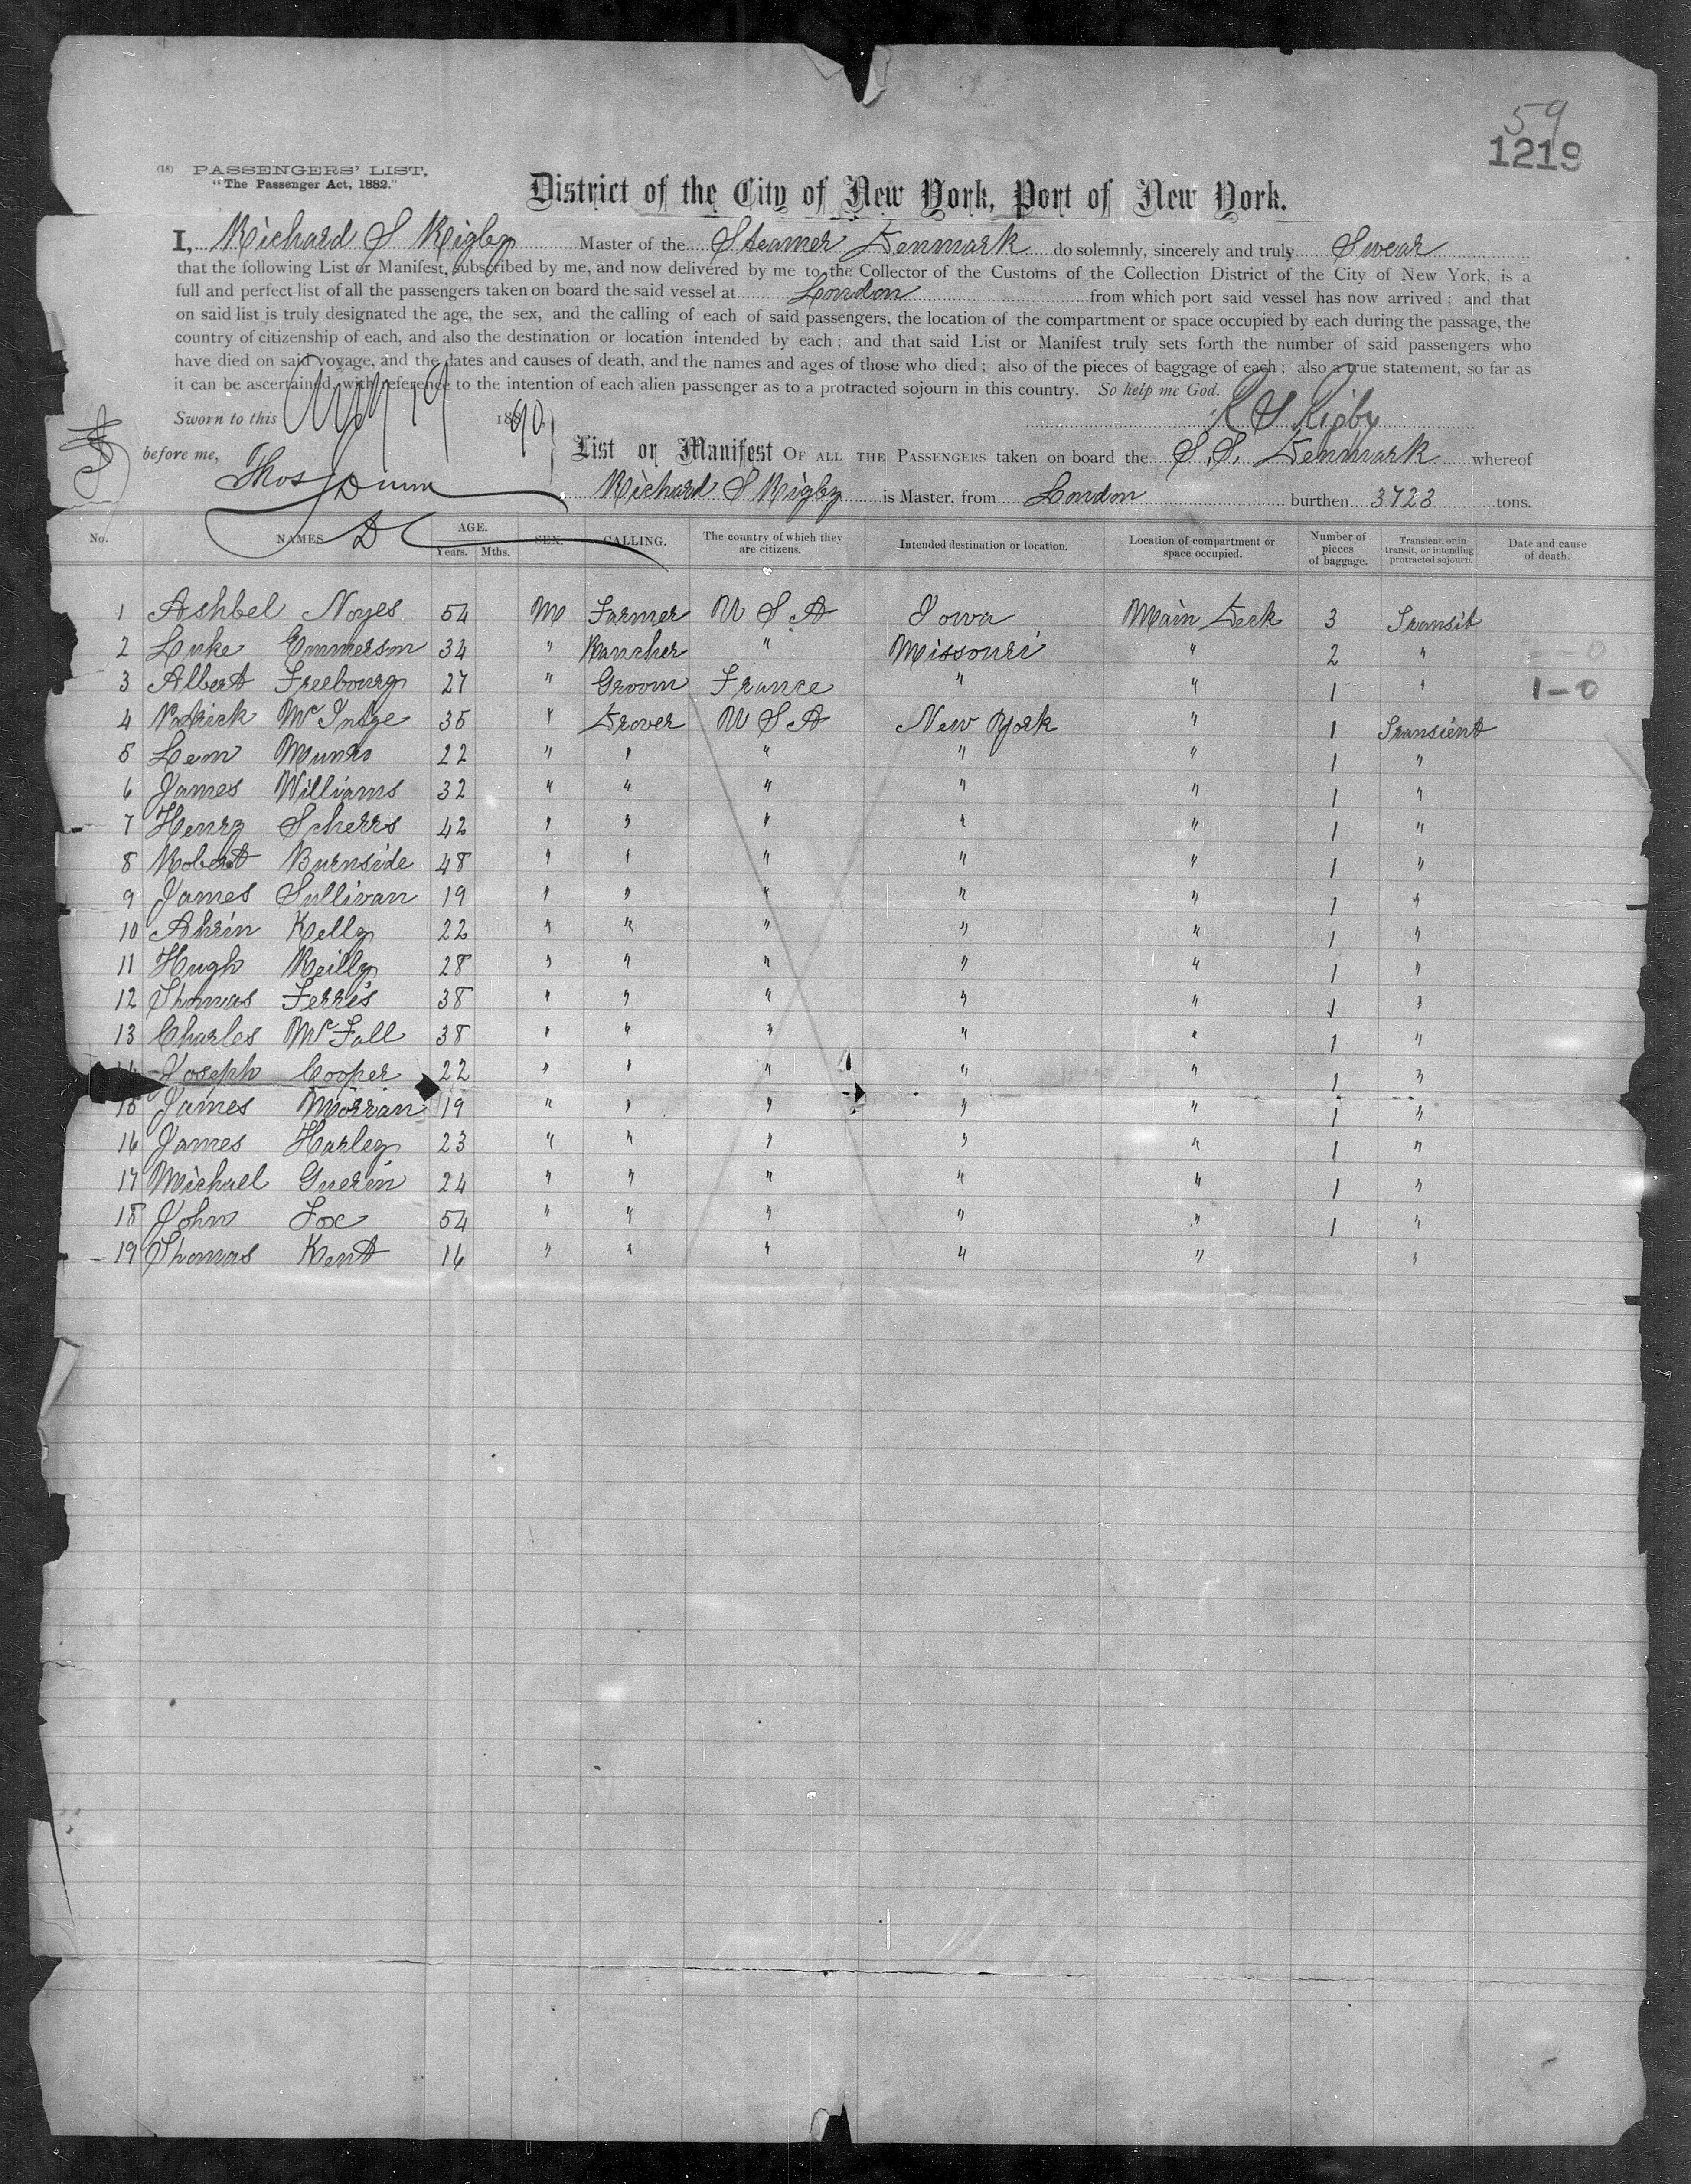 59
1219
(18) PASSENGERS' LIST.
"The Passenger Act, 1882."
District of the City of New York, Port of New York.
I, Richard S Rigby Master of the Steamer Denmark do solemnly, sincerely and truly Swear
that the following List or Manifest, subscribed by me, and now delivered by me to the Collector of the Customs of the Collection District of the City of New York, is a
full and perfect list of all the passengers taken on board the said vessel at London from which port said vessel has now arrived; and that
on said list is truly designated the age, the sex, and the calling of each of said passengers, the location of the compartment or space occupied by each during the passage, the
country of citizenship of each, and also the destination or location intended by each; and that said List or Manifest truly sets forth the number of said passengers who
have died on said voyage, and the dates and causes of death, and the names and ages of those who died; also of the pieces of baggage of each; also a true statement, so far as
it can be ascertained, with reference to the intention of each alien passenger as to a protracted sojourn in this country. So help me God.
Sworn to this 19 1890 R S Rigby
before me, Thos Dunn
List or Manifest OF ALL THE PASSENGERS taken on board the S.S. Denmark whereof
Richard S Rigby is Master, from London burthen 3723 tons.
No. NAMES AGE. Years. Mths. SEX. CALLING. The country of which they are citizens. Intended destination or location. Location of compartment or space occupied. Number of pieces of baggage. Transient, or in transit, or intending protracted sojourn. Date and cause of death.
1 Ashbel Noyes 54 M Farmer U S A Iowa Main Deck 3 Transit
2 Luke Emmerson 34 " Rancher " Missouri " 2 "
3 Albert Freebourg 27 " Groom France " " 1 " 1-0
4 Rodrick 35 " Drover U S A New York " 1 Transient
5 Lem Munro 22 " " " " " 1 "
6 James Williams 32 " " " " " 1 "
7 Henry Scherrs 42 " " " " " 1 "
8 Robert Burnside 48 " " " " " 1 "
9 James Sullivan 19 " " " " " 1 "
10 Ahrin Kelly 22 " " " " " 1 "
11 Hugh Reilly 28 " " " " " 1 "
12 Thomas Ferris 38 " " " " " 1 "
13 Charles McFall 38 " " " " " 1 "
14 Joseph Cooper 22 " " " " " 1 "
15 James Morran 19 " " " " " 1 "
16 James Harley 23 " " " " " 1 "
17 Michael Guerin 24 " " " " " 1 "
18 John Fox 54 " " " " " 1 "
19 Thomas Kent 16 " " " " " "